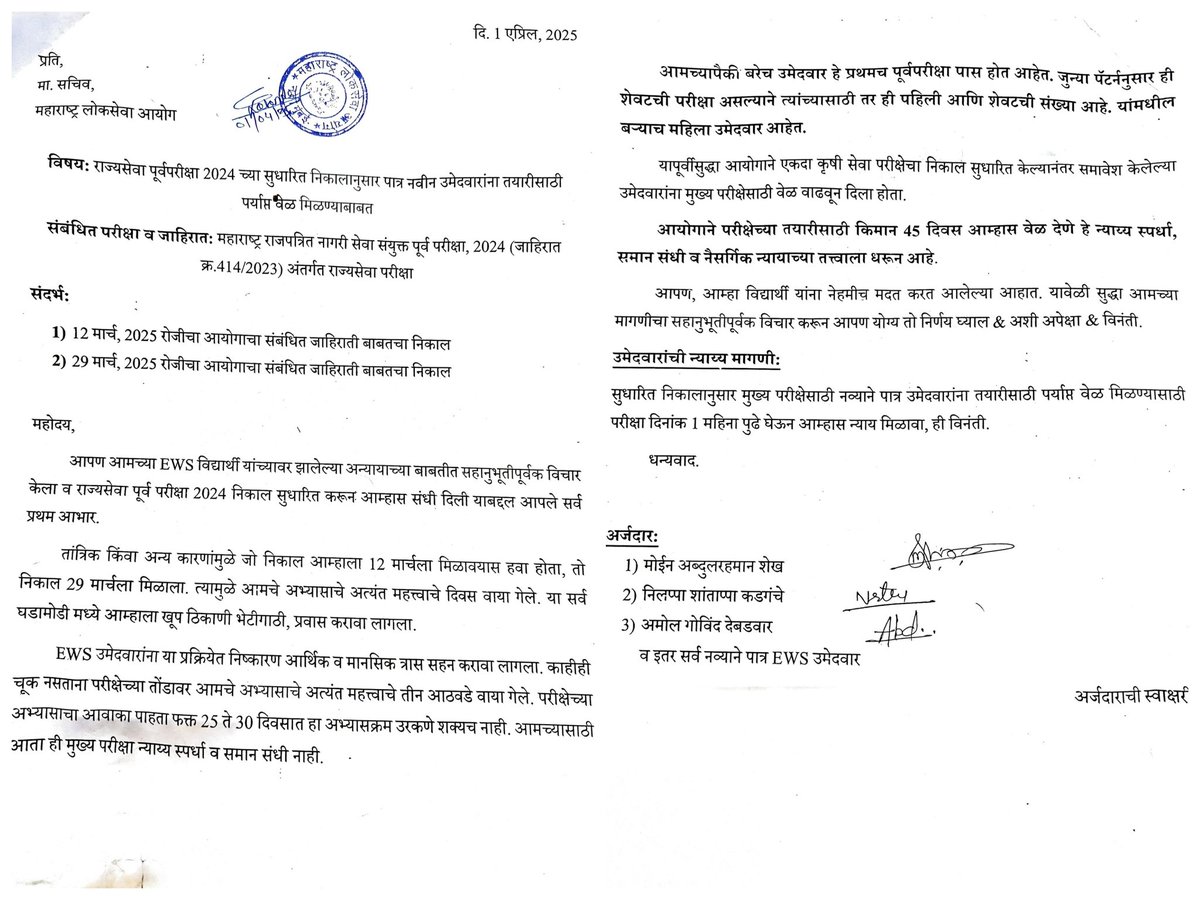 दि. 1 एप्रिल, 2025
प्रति,
मा. सचिव,
महाराष्ट्र लोकसेवा आयोग
महाराष्ट्र लोकसेवा आयोग
01/04/
विषय: राज्यसेवा पूर्वपरीक्षा 2024 च्या सुधारित निकालानुसार पात्र नवीन उमेदवारांना तयारीसाठी
पर्याप्त वेळ मिळण्याबाबत
संबंधित परीक्षा व जाहिरात: महाराष्ट्र राजपत्रित नागरी सेवा संयुक्त पूर्व परीक्षा, 2024 (जाहिरात
क्र.414/2023) अंतर्गत राज्यसेवा परीक्षा
संदर्भ:
1) 12 मार्च, 2025 रोजीचा आयोगाचा संबंधित जाहिराती बाबतचा निकाल
2) 29 मार्च, 2025 रोजीचा आयोगाचा संबंधित जाहिराती बाबतचा निकाल
महोदय,
आपण आमच्या EWS विद्यार्थी यांच्यावर झालेल्या अन्यायाच्या बाबतीत सहानुभूतीपूर्वक विचार
केला व राज्यसेवा पूर्व परीक्षा 2024 निकाल सुधारित करून आम्हास संधी दिली याबद्दल आपले सर्व
प्रथम आभार.
तांत्रिक किंवा अन्य कारणांमुळे जो निकाल आम्हाला 12 मार्चला मिळावयास हवा होता, तो
निकाल 29 मार्चला मिळाला. त्यामुळे आमचे अभ्यासाचे अत्यंत महत्त्वाचे दिवस वाया गेले. या सर्व
घडामोडी मध्ये आम्हाला खूप ठिकाणी भेटीगाठी, प्रवास करावा लागला.
EWS उमेदवारांना या प्रक्रियेत निष्कारण आर्थिक व मानसिक त्रास सहन करावा लागला. काहीही
चूक नसताना परीक्षेच्या तोंडावर आमचे अभ्यासाचे अत्यंत महत्त्वाचे तीन आठवडे वाया गेले. परीक्षेच्या
अभ्यासाचा आवाका पाहता फक्त 25 ते 30 दिवसात हा अभ्यासक्रम उरकणे शक्यच नाही. आमच्यासाठी
आता ही मुख्य परीक्षा न्याय्य स्पर्धा व समान संधी नाही.
आमच्यापैकी बरेच उमेदवार हे प्रथमच पूर्वपरीक्षा पास होत आहेत. जुन्या पॅटर्ननुसार ही
शेवटची परीक्षा असल्याने त्यांच्यासाठी तर ही पहिली आणि शेवटची संख्या आहे. यांमधील
बऱ्याच महिला उमेदवार आहेत.
यापूर्वीसुद्धा आयोगाने एकदा कृषी सेवा परीक्षेचा निकाल सुधारित केल्यानंतर समावेश केलेल्या
उमेदवारांना मुख्य परीक्षेसाठी वेळ वाढवून दिला होता.
आयोगाने परीक्षेच्या तयारीसाठी किमान 45 दिवस आम्हास वेळ देणे हे न्याय्य स्पर्धा,
समान संधी व नैसर्गिक न्यायाच्या तत्त्वाला धरून आहे.
आपण, आम्हा विद्यार्थी यांना नेहमीच मदत करत आलेल्या आहात. यावेळी सुद्धा आमच्या
मागणीचा सहानुभूतीपूर्वक विचार करून आपण योग्य तो निर्णय घ्याल & अशी अपेक्षा & विनंती.
उमेदवारांची न्याय्य मागणी:
सुधारित निकालानुसार मुख्य परीक्षेसाठी नव्याने पात्र उमेदवारांना तयारीसाठी पर्याप्त वेळ मिळण्यासाठी
परीक्षा दिनांक 1 महिना पुढे घेऊन आम्हास न्याय मिळावा, ही विनंती.
धन्यवाद.
अर्जदार:
1) मोईन अब्दुलरहमान शेख
2) निलप्पा शांताप्पा कडगंचे
3) अमोल गोविंद देबडवार
व इतर सर्व नव्याने पात्र EWS उमेदवार
अर्जदाराची स्वाक्षरी